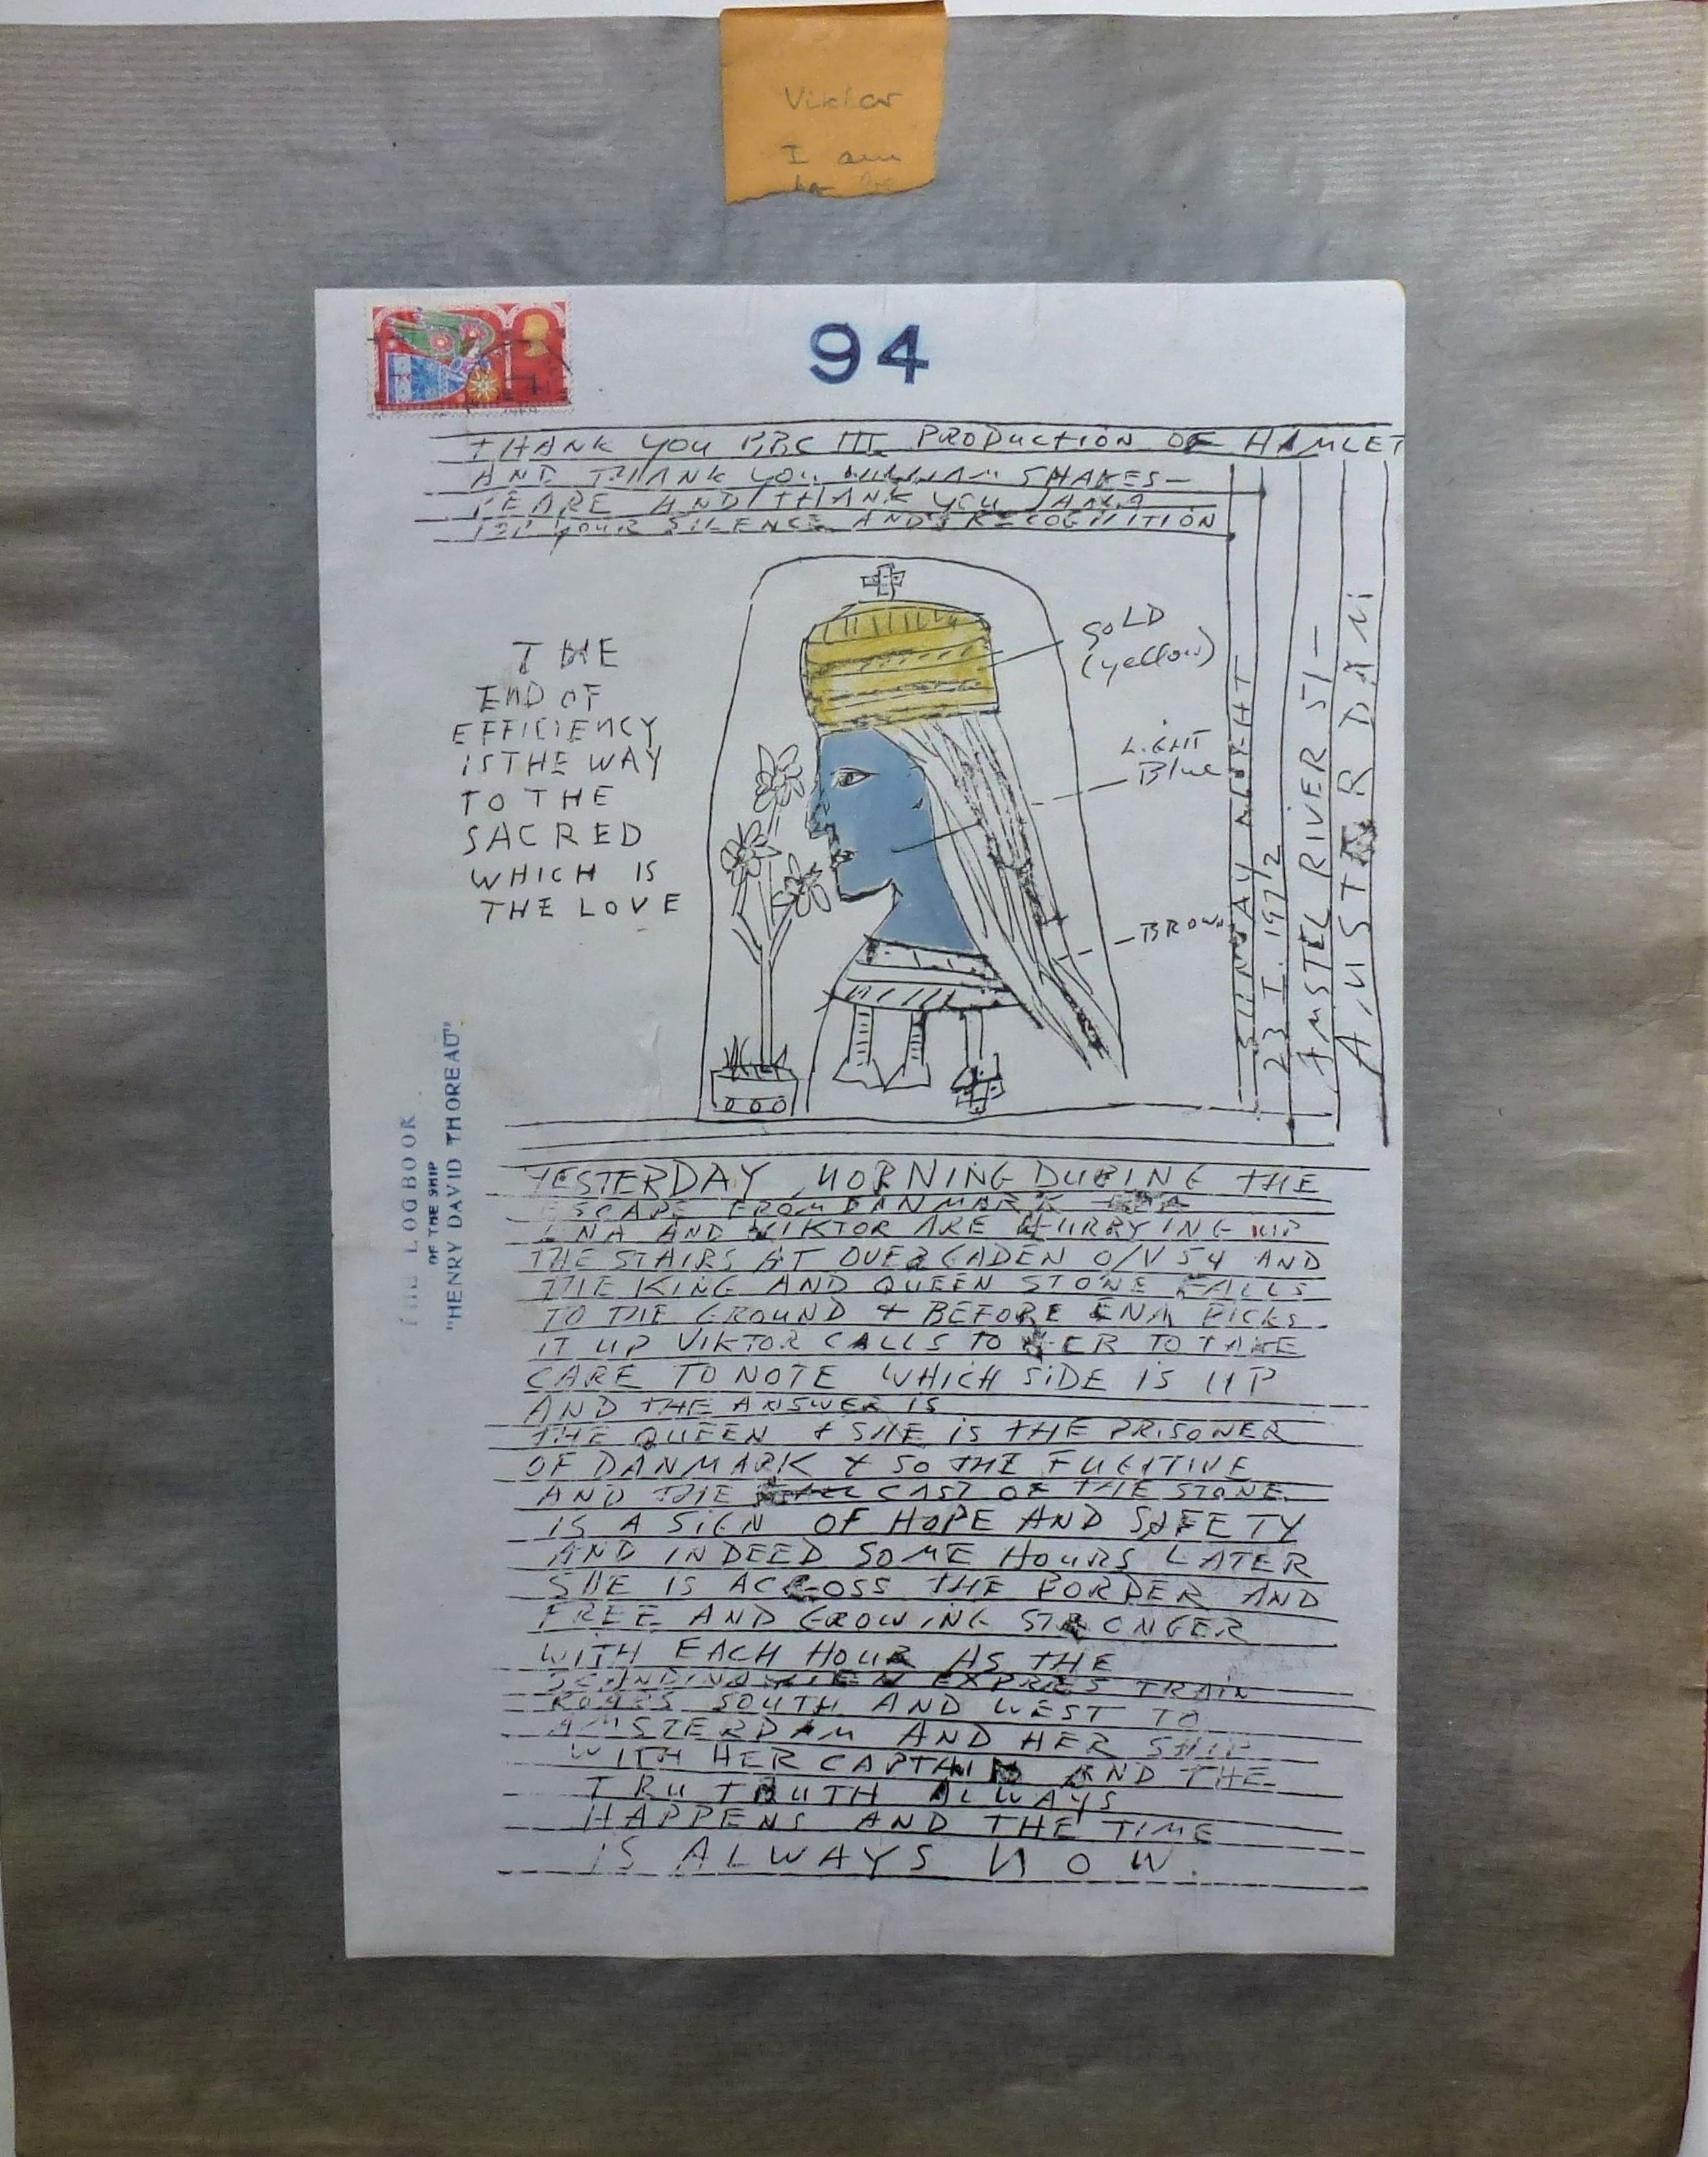 Viktor
I am
94
THANK YOU BBC III PRODUCTION OF HAMLET
AND THANK YOU WILLIAM SHAKES-
PEARE AND THANK YOU
FOR YOUR SILENCE AND RECOGNITION
THE
END OF
EFFICIENCY
IS THE WAY
TO THE
SACRED
WHICH IS
THE LOVE
GOLD
(yellow)
LIGHT
Blue
BROWN
SUNDAY NIGHT
23 I. 1972
AMSTEL RIVER 51-
AMSTERDAM
THE LOGBOOK
OF THE SHIP
"HENRY DAVID THOREAU"
YESTERDAY MORNING DURING THE
ESCAPE FROM DANMARK
ENA AND VIKTOR ARE HURRYING UP
THE STAIRS AT OVERGADEN O/V 54 AND
THE KING AND QUEEN STONE FALLS
TO THE GROUND + BEFORE ENA PICKS
IT UP VIKTOR CALLS TO HER TO TAKE
CARE TO NOTE WHICH SIDE IS UP
AND THE ANSWER IS
THE QUEEN + SHE IS THE PRISONER
OF DANMARK + SO THE FUGITIVE
AND THE CAST OF THE STONE
IS A SIGN OF HOPE AND SAFETY
AND INDEED SOME HOURS LATER
SHE IS ACROSS THE BORDER AND
FREE AND GROWING STRONGER
WITH EACH HOUR AS THE
SCANDINAVIEN EXPRES TRAIN
ROARS SOUTH AND WEST TO
AMSTERDAM AND HER SHIP
WITH HER CAPTAIN AND THE
TRU TRUTH ALWAYS
HAPPENS AND THE TIME
IS ALWAYS NOW.